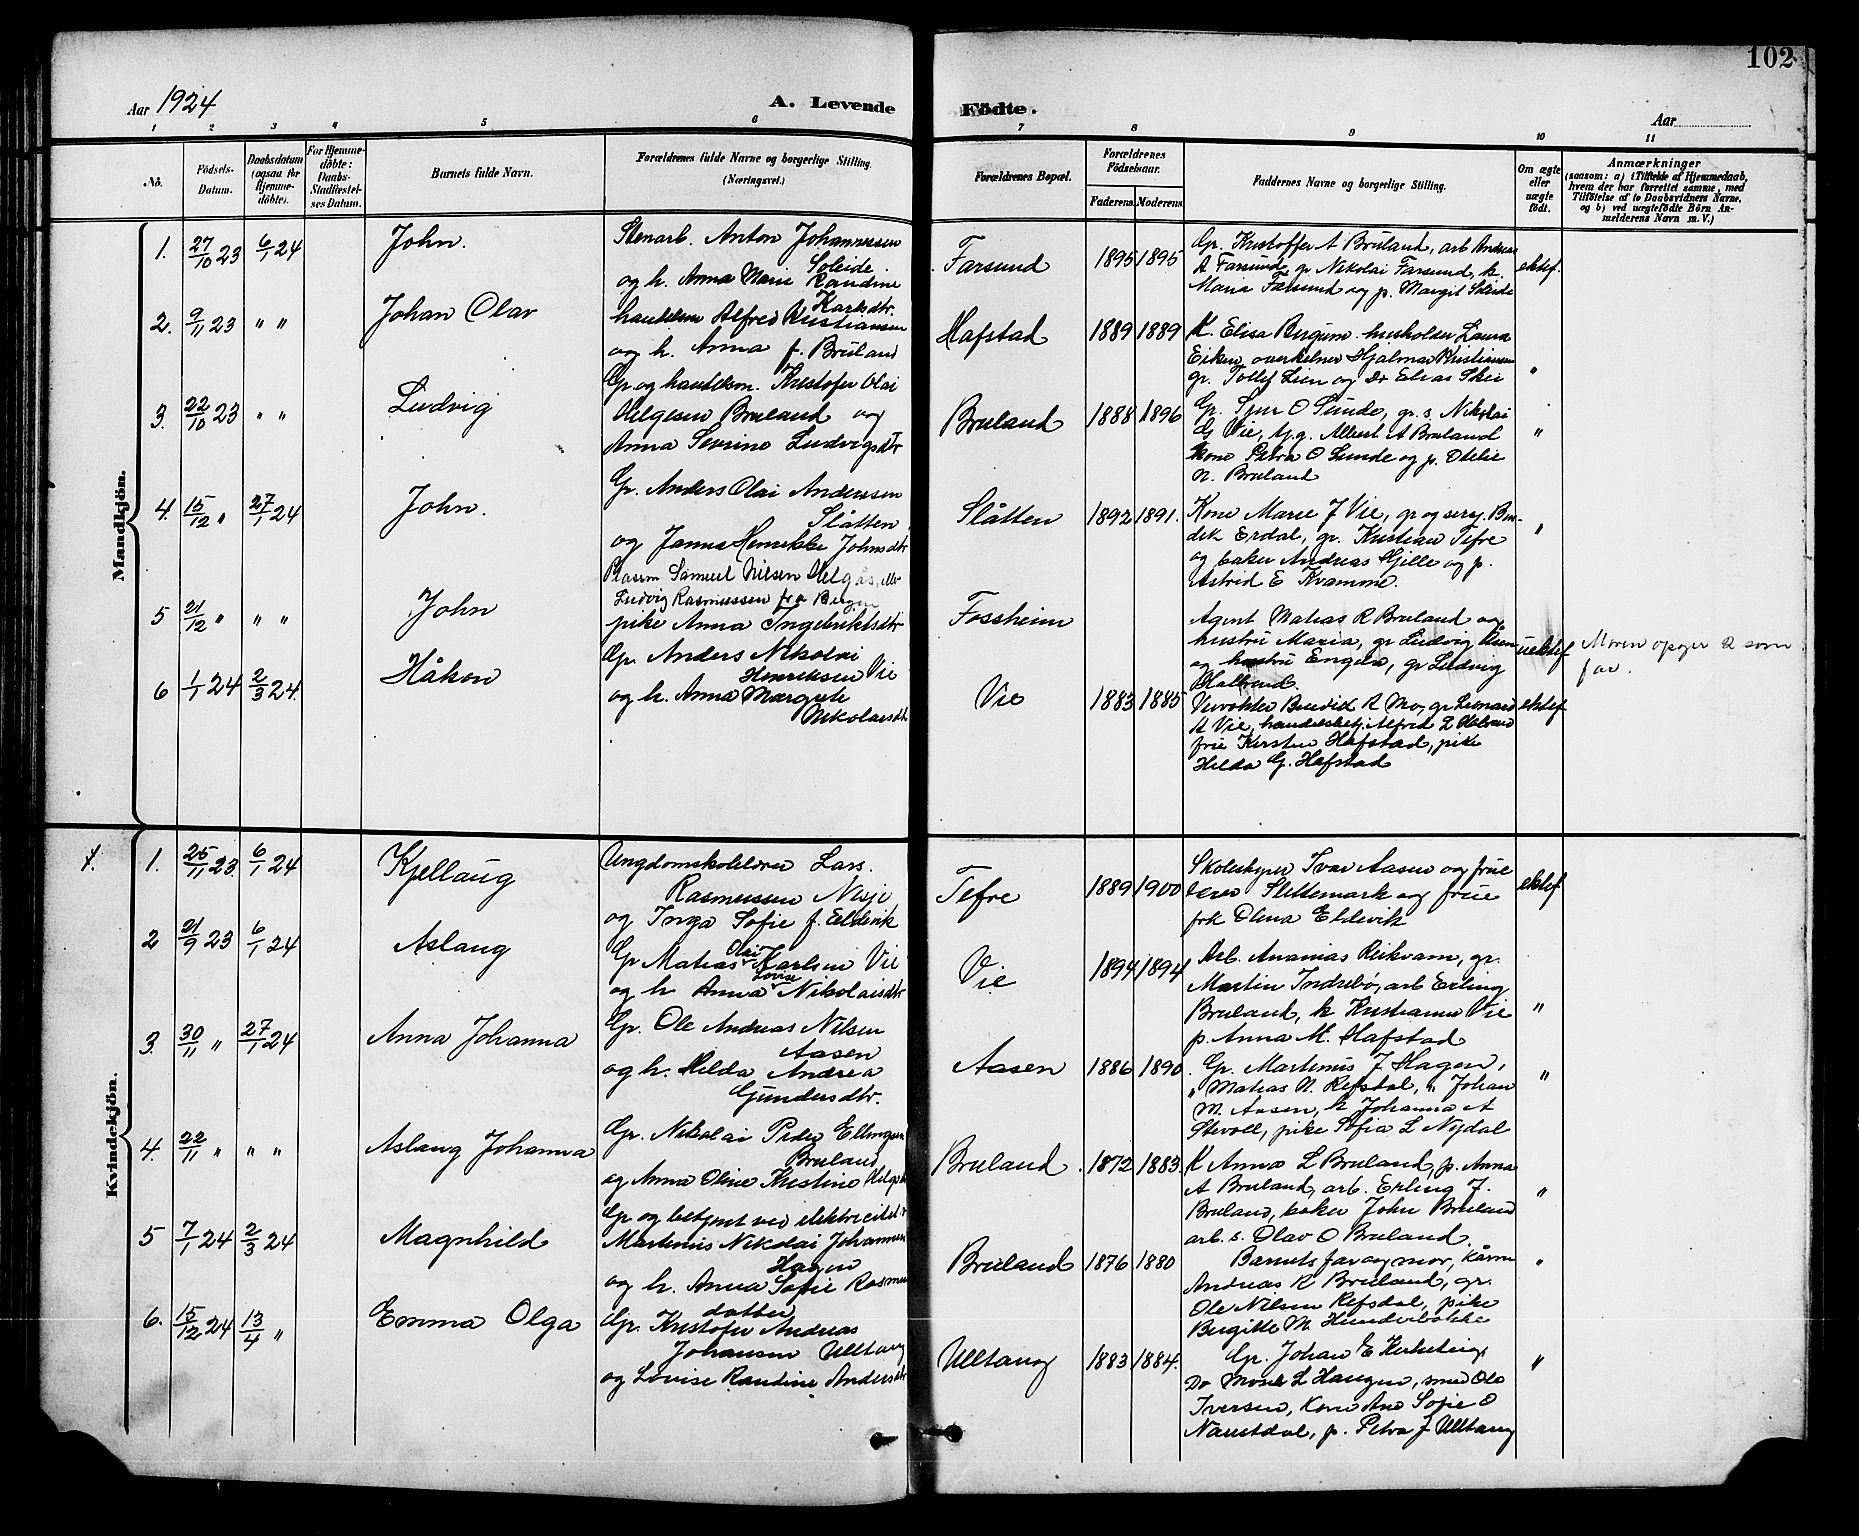 102
Aar 1924
A. Levende
Födte.
Aar
1 2 3 4 5 6 7 8 9 10 11
No.
Födsels-Datum.
Daabsdatum (ogsaa for Hjemme-döbte).
For Hjemme-döbte: Daabs-Stadfæstel-ses Datum.
Barnets fulde Navn.
Forældrenes fulde Navne og borgerlige Stilling. (Næringsvei.)
Forældrenes Bopæl.
Forældrenes Födselsaar.
Faderens. Moderens.
Faddernes Navne og borgerlige Stilling.
Om ægte eller uægte födt.
Anmærkninger
(saasom: a) i Tilfælde af Hjemmedaab,
hvem der har forrettet samme, med
Tilföielse af to Daabsvidners Navne,
og b) ved uægtefödte Börn An-
melderens Navn m. V.)
Mandkjön.
1. 27/10 23 6/1 24
John.
Stenarb. Anton Johannessen
Soleide.
og h. Anna Marie Randine
Karlsdtr.
Farsund
1895 1895
Gr. Kristoffer A Bruland, arb Anders
A Farsund, gr. Nikolai Farsund, k.
Maria Farsund og p. Margit Soleide
ektef.
2. 9/11 23 " "
Johan Olav
handelsm Alfred Kristiansen
og h. Anna f. Bruland
Hafstad
1889 1889
K. Elisa Bergum husholder Laura
Eiken, overkelner Hjalmar Kristiansen
gr. Tollef Lien og Dr Elias Skei
"
3. 22/10 23 " "
Ludvig
Gr og handelsm. Kristofer Olai
Helgesen Bruland og
Anna Severine Ludvigsdtr
Bruland
1888 1896
Gr. Sjur O Sunde, gr. s. Nikolai
G Vie, Albert A Bruland
Kone Petra O Sunde og p. Otelie
N. Bruland
"
4. 15/12 " 27/1 24
John.
Gr. Anders Olai Anderssen
Slåtten
og Janna Henrikke Johnsdtr
Slåtten
1892 1891.
Kone Marie J Vie, gr og sersj. Ben-
dik Erdal, gr. Kristian Tefre
og baker Andreas Hjelle og p.
Astrid E Kvamme.
"
5 21/12 " " "
John
Plassm Samuel Nilsen Helgås, eller
Ludvig Rasmussen fra Bergen
pike Anna Ingebriktsdtr
Fossheim
Agent Matias R Bruland og
hustru Maria, gr Ludvig
og hustru Engela, gr Ludvig
Halbrend.
uektef
Moren opgir 2 som
far.
6 1/1 24 2/3 24.
Håkon
Gr. Anders Nikolai
Henriksen Vie
og h. Anna Margrete
Nikolaisdtr
Vie
1883 1885
Benedik R Mo, gr Leonard
A Vie, handelsbetj. Alfred L Halbrend
frue Kirsten Hafstad, pike
Hilda G. Hafstad
ektef
Kvindekjön.
1. 1. 25/11 23. 6/1 24
Kjellaug
Ungdomskolelærer Lars.
Rasmussen Nesje
og Inga Sofie f. Eldevik
Tefre
1889 1900
Skolestyrer Ivar Aasen og frue
lærer Slettemark og frue
frk Olena Eldevik
ektef
2 21/9 23 6/1 24
Aslaug
Gr Matias Olai Karlsen Vie
og h Anna Lovise Nikolaisdtr
Vie
1894 1894
Arb. Ananias Reikvam, gr.
Martin Indrebø, arb Erling
Bruland, k Kristianna Vie
p. Anna M. Hafstad
"
3. 30/11 " 27/1 24
Anna Johanna
Gr. Ole Andreas Nilsen
Aasen
og h. Hilda Andrea
Gundersdtr.
Aasen
1886 1890.
Gr. Martinus J Hagen,
" Matias N. Refsdal, " Johan
M. Aasen, k Johanna A
Stevoll, pike Sofia L Nydal
"
4. 22/11 " " "
Aslaug Johanna
Gr. Nikolai Peder Ellingsen
Bruland
og Anna Oline Kristine Helgesdtr
Bruland.
1872 1883.
K Anna L Bruland, p. Anna
A Bruland, arb. Erling J.
Bruland, baker John Bruland
arb. s. Olav O Bruland.
"
5 7/1 24 2/3 24
Magnhild
Gr og betjent ved elektricitetsv
Martinius Nikolai Johannesen
Hagen
og h. Anna Sofie Rasmus
datter
Bruland
1876 1880
Barnets far og mor, kårm
Andreas K Bruland, gr.
Ole Nilsen Refsdal, pike
Birgitte M. Hunderbakke
"
6. 15/12 24 13/4 "
Emma Olga
Gr. Kristofer Andreas
Johansen Ulltang
og Lovise Randine Andersdtr
Ulltang
1883 1884.
Gr. Johan E Kirketeig,
Do Mons L Haugen, smed Ole
Iversen, Kone Ane Sofie O
Naustdal, p. Petra J Ulltang
"